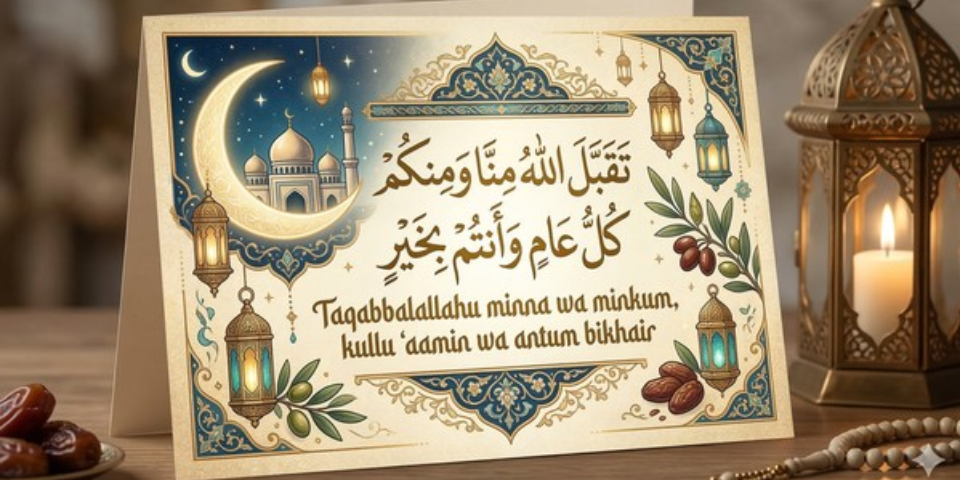 تَقَبَّلَ اللهُ مِنَّا وَمِنكُمْ
كُلُّ عَامٍ وَأَنتُمْ بِخَيْرٍ
Taqabbalallahu minna wa minkum,
kullu ‘aamin wa antum bikhair